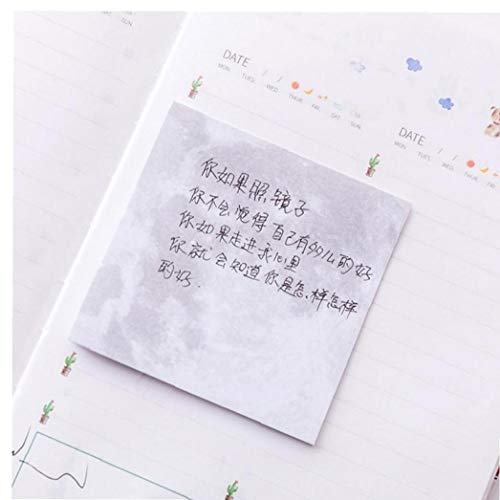 SUN
DATE / /
MON. TUES. WED. THUR. FRI. SAT. SUN.
DATE / /
MON. TUES. WED. THUR.
你如果照镜子
你不会觉得自己有多么的好
你如果走进我心里
你就会知道你是怎样怎样
的好.